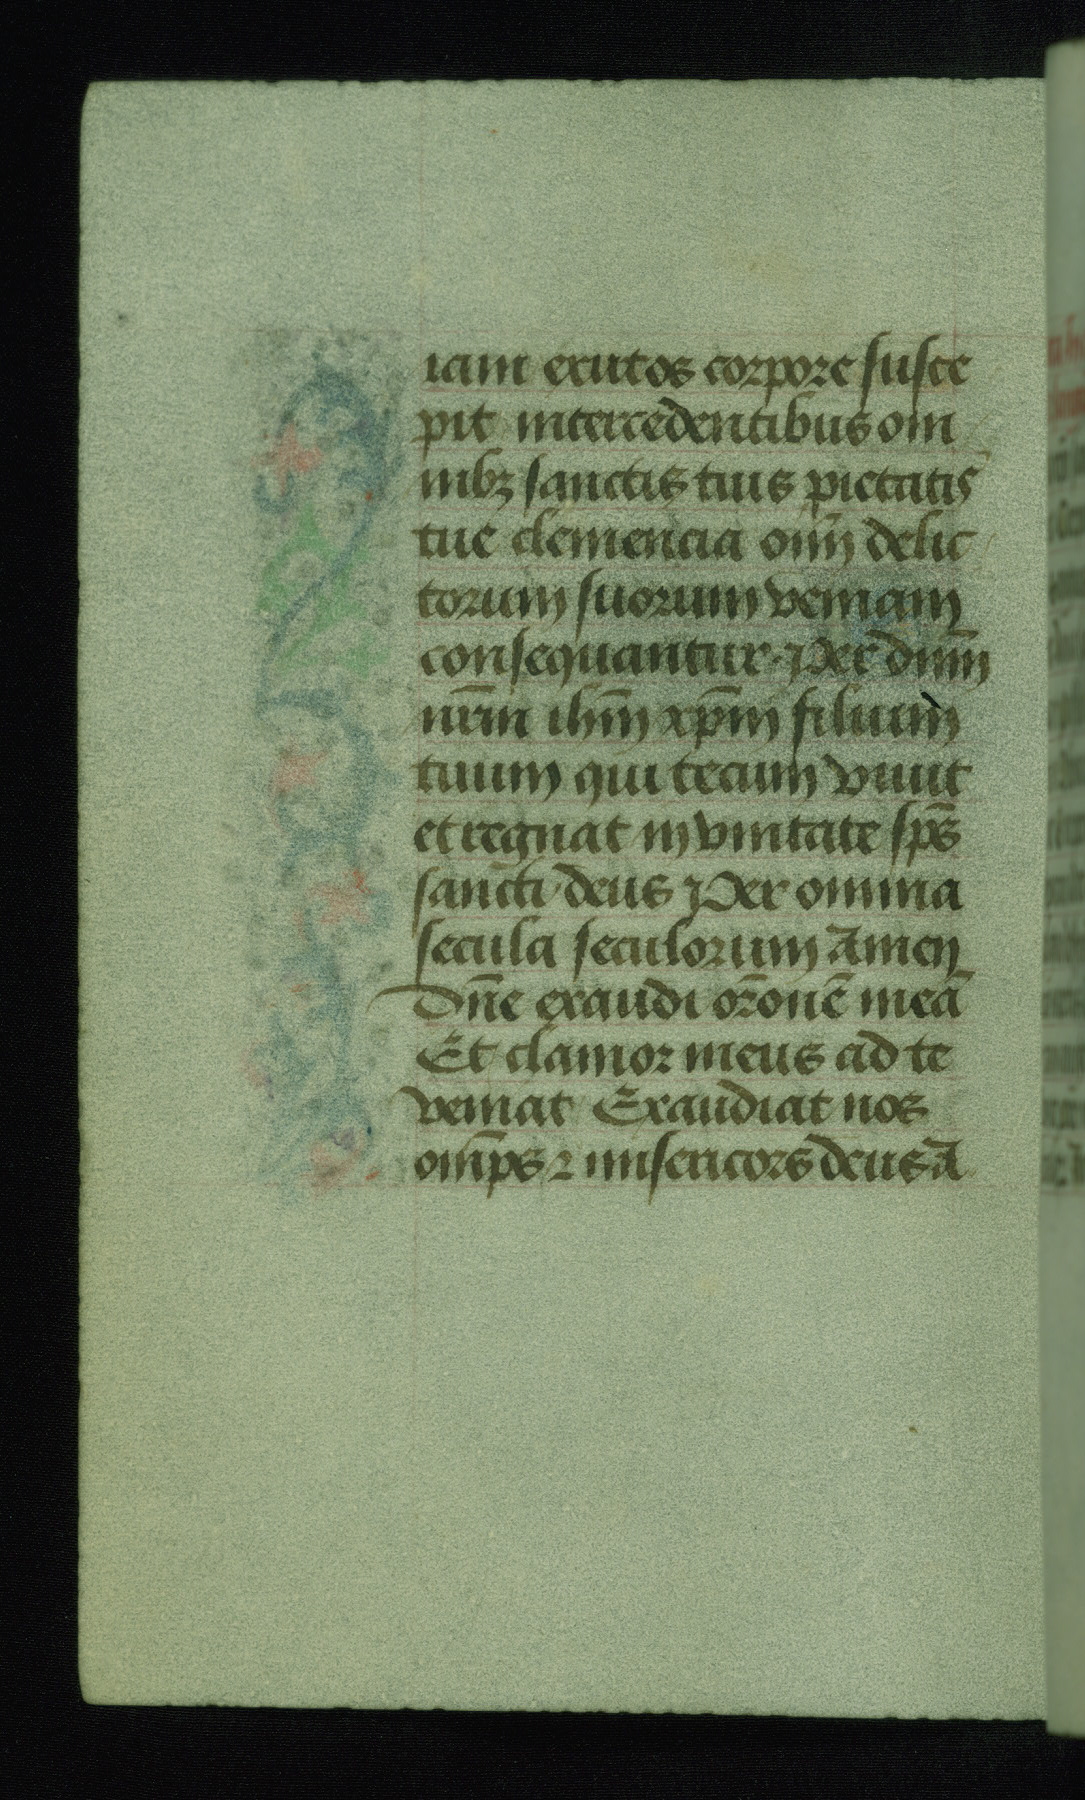 iam exutos corpore susce
pit intercedentibus om
nibꝫ sanctis tuis pietatis
tue clemencia oīm delic
torum suorum veniam
consequantur. Per dn̄m
nr̄m ihm̄ xp̄m filium
tuum qui tecum viuit
et regnat in vnitate sp̄s
sancti deus Per omnia
secula seculorum Amen
Dn̄e exaudi or̄onē meā
Et clamor meus ad te
veniat Exaudiat nos
om̄ps ⁊ misericors deus ā